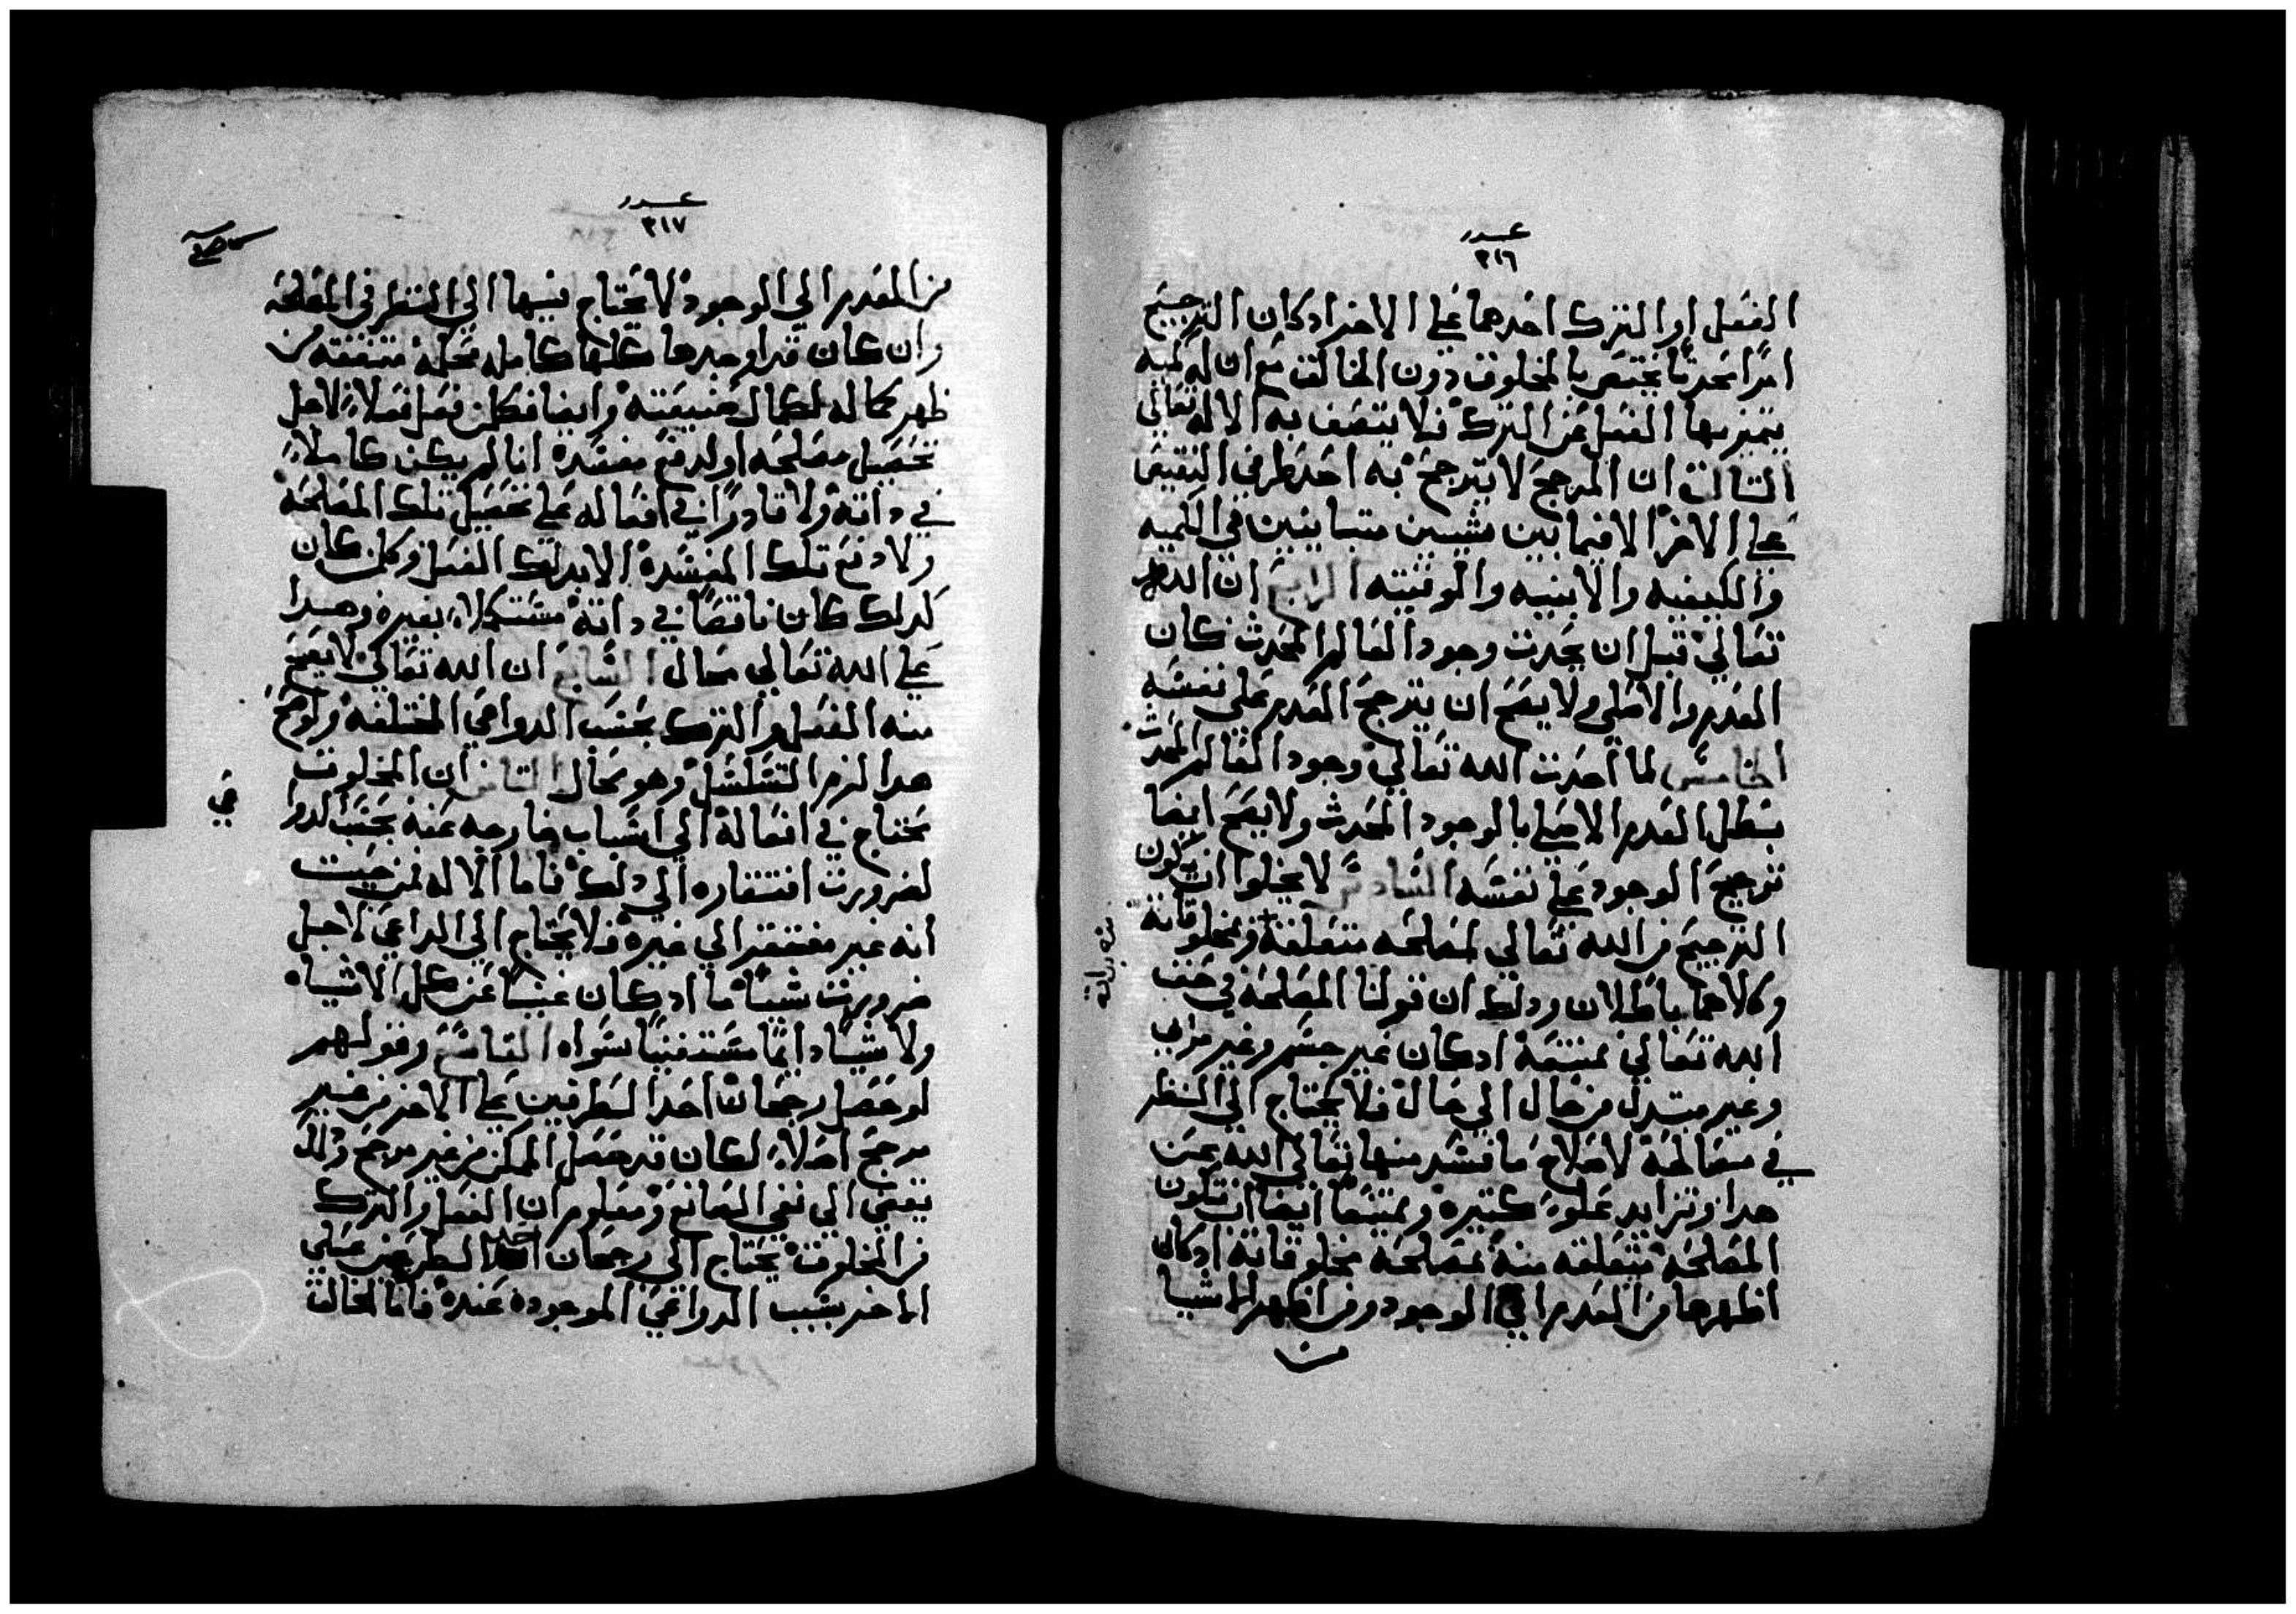 عدد
٣١٦
الفعل او الترك احدهما علي الاخر ادكان الترجيح
امرًا محدثًا يختص بالمخلوق دون الخالق مع ان له كميه
يتميز بها الفعل عن الترك فلا يتصف به الاله تعالي
الثالث ان المرجح لا يترجح به احد طرفي النقيض
علي الاخر الا فيما بين شيين متباينين في الكميه
والكيفيه والاينيه والوقتيه الرابع ان الله
تعالي قبل ان يحدث وجود العالم المحدث كان
العدم والاصلي ولا يصح ان يترجح العدم علي نفسه
الخامس لما احدث الله تعالي وجود العالم المحدث
بطل العدم الاصلي بالوجود المحدث ولا يصح ايضا
ترجيح الوجود علي نفسه السادس لا يخلوا ان يكون
الترجيح من الله تعالي لمصلحه متعلقة بمخلوقاته
وكلاهما باطلان ودلك ان قولنا المصلحه في حق
الله تعالي ممتنعة ادكان غير جسم وغير مرايي
وغير مبتدل من حال الي حال فلا يحتاج الي النظر
في مصالحة لاصلاح ما فسد منها تعالي الله عن
هدا وتزايد علوًا كتيره وممتنعًا ايضا ان تكون
المصلحه متعلقه منه بمصلحة مخلوقاته ادكان
اظهرها من العدم الي الوجود ومن اظهر الاشيا
من
عدد
٣١٧
من العدم الي الوجود لا يحتاج فيها الي النظر في المصلحه
وان كان قد اوجدها كلها كامله محكمة متقنة من
ظهر كماله لكمال صنيعته وايضا فكل من فعل فعلاً لاجل
تحصيل مصلحه او لدفع مفسده انا لم يكن كاملاً
في داته ولا قادرًا في افعاله علي تحصيل تلك المصلحه
ولا دفع تلك المفسده الا بدلك الفعل وكلمن كان
كدلك كان ناقصًا في داته مستكملاً بغيره وهدا
علي الله تعالي محال السابع ان الله تعالي لا يصح
منه الفعل والترك بحسب الدواعي المختلفه ولو صح
هدا لزم التسلسل وهو محال الثامن ان المخلوق
محتاج في افعاله الي اسباب خارجه عنه بحسب الدوا
عي
لضرورت افتقاره الي دلك فاما الاله فمن حيت
انه غير مفتقر الي غيره فلا يحتاج الي الداعي لاجل
ضرورت شيًا ما ادكان غنيًا عن كل الاشياء
ولا شيًا دايمًا مستغنيًا سواه التاسع وقولهم
لو حصل رجحان احد الطرفين علي الاخر من غير
مرجح اصلاً لكان قد حصل الممكن من غير مرجح ودلك
يفضي الي نفي الصانع ومعلوم ان الفعل والترك
من المخلوق يحتاج الي رجحان احد الطرفين علي
الاخر بسبب الدواعي الموجوده عنده فاما الخالق